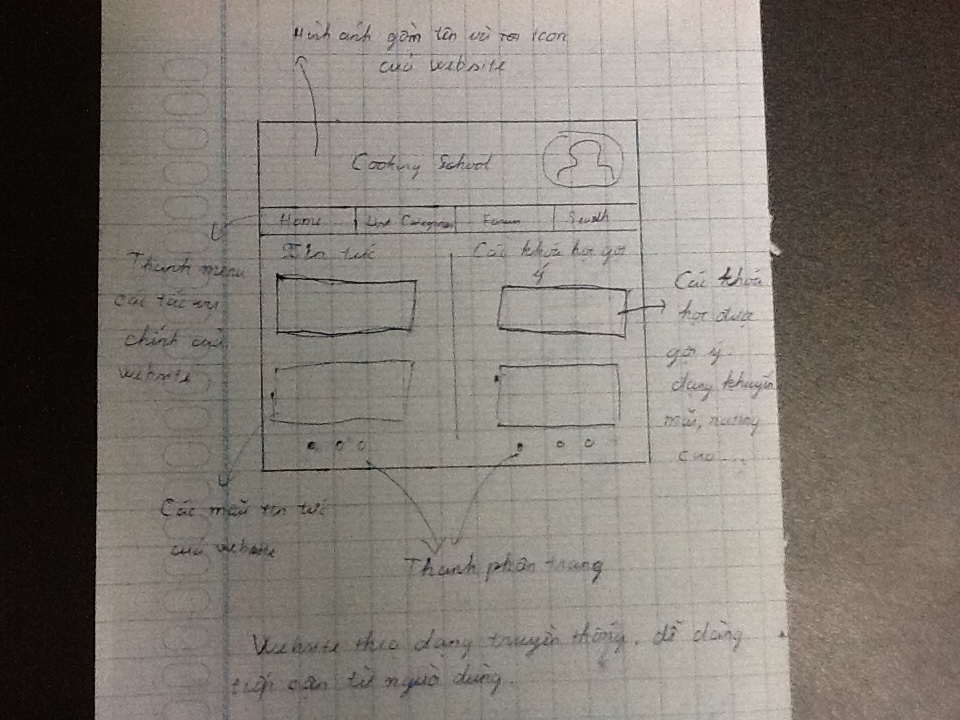 Hình ảnh gồm tên và icon
của website
Cooking School
Home
List Categories
Forum
Search
Tin tức
Các khóa học gợi
ý
Thanh menu
các tác vụ
chính của
website
Các khóa
học được
gợi ý
dạng khuyến
mãi, nâng
cao...
Các mẩu tin tức
của website
Thanh phân trang
Website theo dạng truyền thống, dễ dàng
tiếp cận từ người dùng.